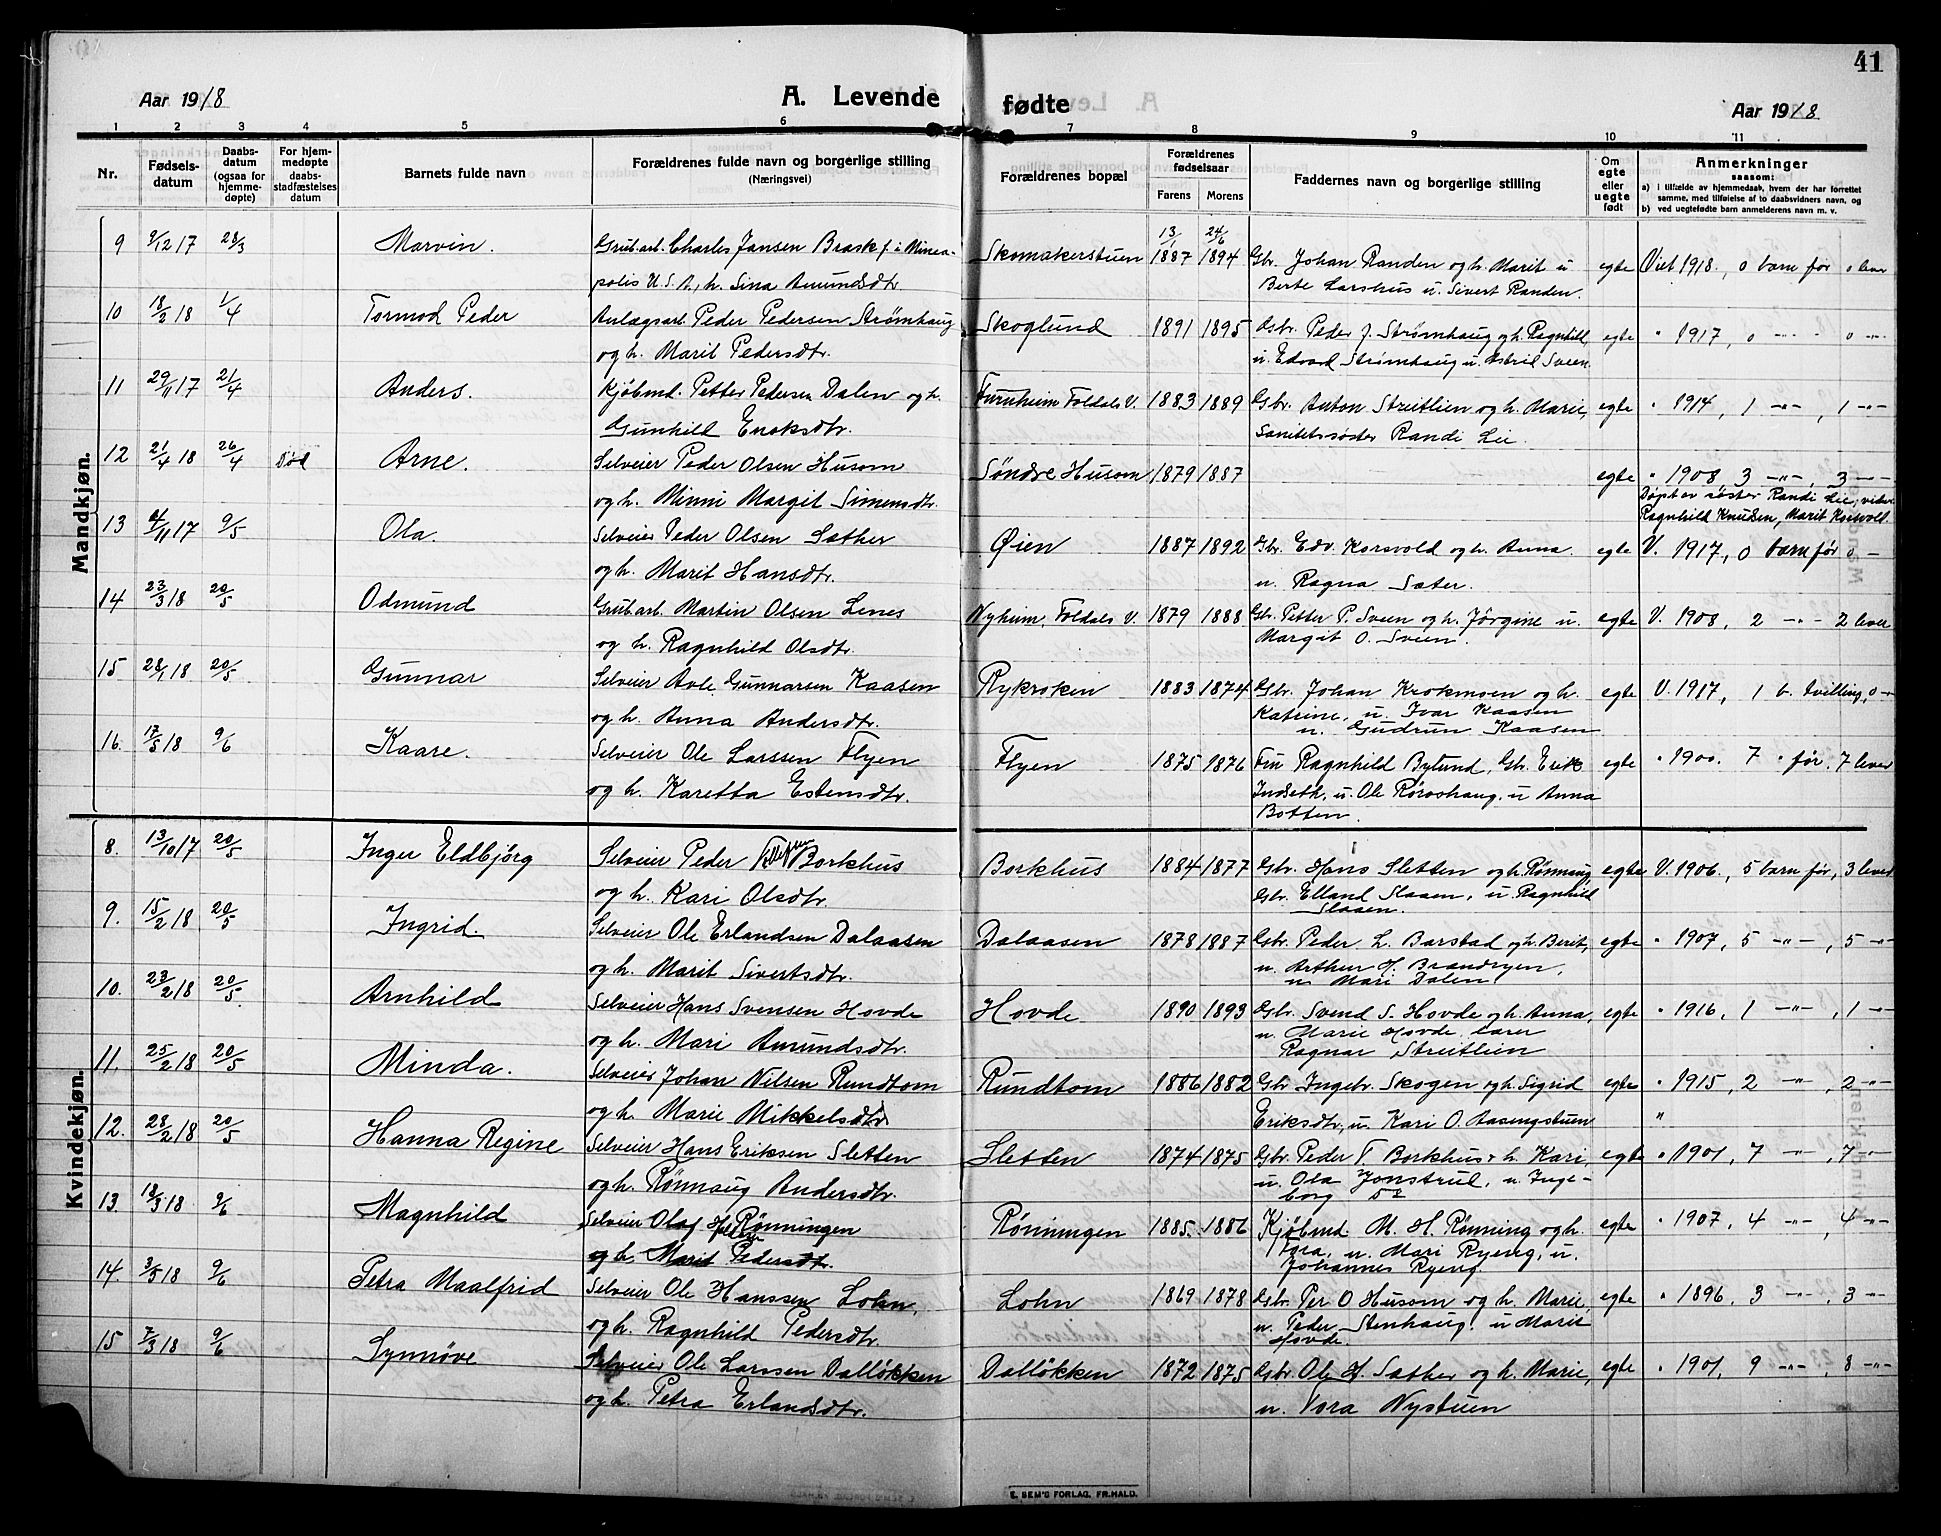 41
Aar 1918 A. Levende fødte Aar 1918
1 2 3 4 5 6 7 8 9 10 11
Nr. Fødselsdatum Daabsdatum (ogsaa for hjemmedøpte) For hjemmedøpte daabsstadfæstelses datum Barnets fulde navn Forældrenes fulde navn og borgerlige stilling (Næringsvei) Forældrenes bopæl Forældrenes fødselsaar Farens Morens Faddernes navn og borgerlige stilling Om egte eller uegte født Anmerkninger saasom:
a) i tilfælde av hjemmedaab, hvem der har forrettet samme, med tilføielse av to daabsvidners navn, og
b) ved uegtefødte barn anmelderens navn m. v.
Mandkjøn.
9 9/12 17 28/3 Marvin. Grubarb. Charles Jansen Brask f. i Minea- Skomakerstuen 13/1 1887 24/6 1894 Gbr. Johan Randen og h. Marit u egte Viet 1918, 0 barn før 0 lever
polis U.S.A., h. Sina Amundsdtr. Berte Larshus u. Sivert Randen.
10 18/2 18 1/4 Tormod Peder Anlægsarb. Peder Pedersen Strømhaug Skoglund 1891 1895 Gbr. Peder J. Strømhaug og h. Ragnhild, egte " 1917, 0 -"- 0 -"-
og h. Marit Pedersdtr. u. Edvard Strømhaug u. Astrid Sveen.
11 29/11 17 21/4 Anders. Kjøbmd. Petter Pedersen Dalen og h. Furuheim Foldals V. 1883 1889 Gbr. Anton Streitlien og h. Marie, egte " 1914, 1 -"-, 1 -"-
Gunhild Enoksdtr. Sanitetssøster Randi Lie.
12 21/4 18 26/4 Død Arne. Selveier Peder Olsen Husom Søndre Husom 1879 1887 egte " 1908 3 -"-, 3 -"-
og h. Minni Margit Simensdtr. Døpt av søster Randi Lie, vidner
Ragnhild Knudsen, Marit Korsvold
13 4/11 17 9/5 Ola. Selveier Peder Olsen Sæther Øien 1887 1892 Gbr. Edv. Korsvold og h. Anna egte V. 1917, 0 barn før 0 -
og h. Marit Hansdtr. u. Ragna Sæter.
14 23/3 18 20/5 Odmund Grubarb. Martin Olsen Lines Nyheim, Foldals V. 1879 1888 Gbr. Petter P. Sveen og h. Jørgine u. egte V. 1908, 2 -"- 2 lever
og h. Ragnhild Olsdtr. Margit O. Sveen.
15 28/1 18 20/5 Gunnar Selveier Avle Gunnarsen Kaasen Rykroken 1883 1874 Gbr. Johan Krokmoen og h. egte V. 1917, 1 b. tvilling, 0 -
og h. Anna Andersdtr. Katrine, u. Ivar Kaasen
u. Gudrun Kaasen
16. 17/5 18 9/6 Kaare. Selveier Ole Larssen Flyen Flyen 1875 1876 Fru Ragnhild Bylund, Gbr. Erik egte " 1900. 7 " før. 7 lever
og h. Karetta Estensdtr. Indseth, u. Ole Røroshaug, u Anna
Botten.
Kvindekjøn.
8. 13/10 17 20/5 Inger Eldbjørg Selveier Peder Tollefsen Borkhus Borkhus 1884 1877 Gbr. Hans Sletten og h. Rønnaug, egte V. 1906, 5 barn før, 3 lever
og h. Kari Olsdtr. Gbr. Elland Slaaen, u. Ragnhild
Slaaen.
9. 15/2 18 20/5 Ingrid. Selveier Ole Erlandsen Dalaasen Dalaasen 1878 1887 Gbr. Peder L. Barstad og h. Berit, egte " 1907, 5 -"-, 5 -"-
og h. Marit Sivertsdtr. u. Arthur H. Brandryen,
u Mari Dalen.
10. 23/2 18 20/5. Arnhild Selveier Hans Svensen Hovde Hovde 1890 1893 Gbr. Svend S. Hovde og h. Anna, egte " 1916, 1 -"-, 1 -"-
og h. Mari Amundsdtr. u. Marie Hovde, lærer
Ragnar Streitlien
11. 25/2 18 20/5 Minda. Selveier Johan Nilsen Rundtom Rundtom 1886 1882 Gbr Ingebr. Skogen og h. Sigrid egte " 1915, 2 -"-, 2 -"-
og h. Marie Mikkelsdtr Eriksdtr, u. Kari O. Aasengstuen "
12. 28/2 18 20/5 Hanna Regine Selveier Hans Eriksen Sletten Sletten 1874 1875 Gbr. Peder T Borkhus + h. Kari, egte " 1901, 7 -"-, 7 -"-
og h. Rønnaug Andersdtr. u. Ola Jonstrud, u. Inge-
borg
13. 18/3 18 9/6 Magnhild Selveier Olaf Rønningen Rønningen 1885. 1886 Kjøbmd. M. H. Rønning og h. egte " 1907, 4 -"-, 4 -"-
og h. Marit Pedersdtr. Tora, u. Mari Ryeng, u.
Johannes Ryeng.
14. 3/5 18 9/6 Petra Maalfrid Selveier Ole Hanssen Lohn, Lohn 1869 1878 Gbr. Per O Husom og h. Marie, egte " 1896, 3 -"-, 3 -"-
og h. Ragnhild Pedersdtr. u. Peder Stenhaug, u Marit
Hovde.
15 7/3 18 9/6 Synnøve Selveier Ole Larssen Dalløkken Dalløkken 1872 1875 Gbr. Ole H. Sæther og h. Marie, egte " 1901, 9 -"-, 8 -"-
og h. Petra Erlandsdtr. u. Tora Nystuen
E. SEM'S FORLAG, FR.HALD.